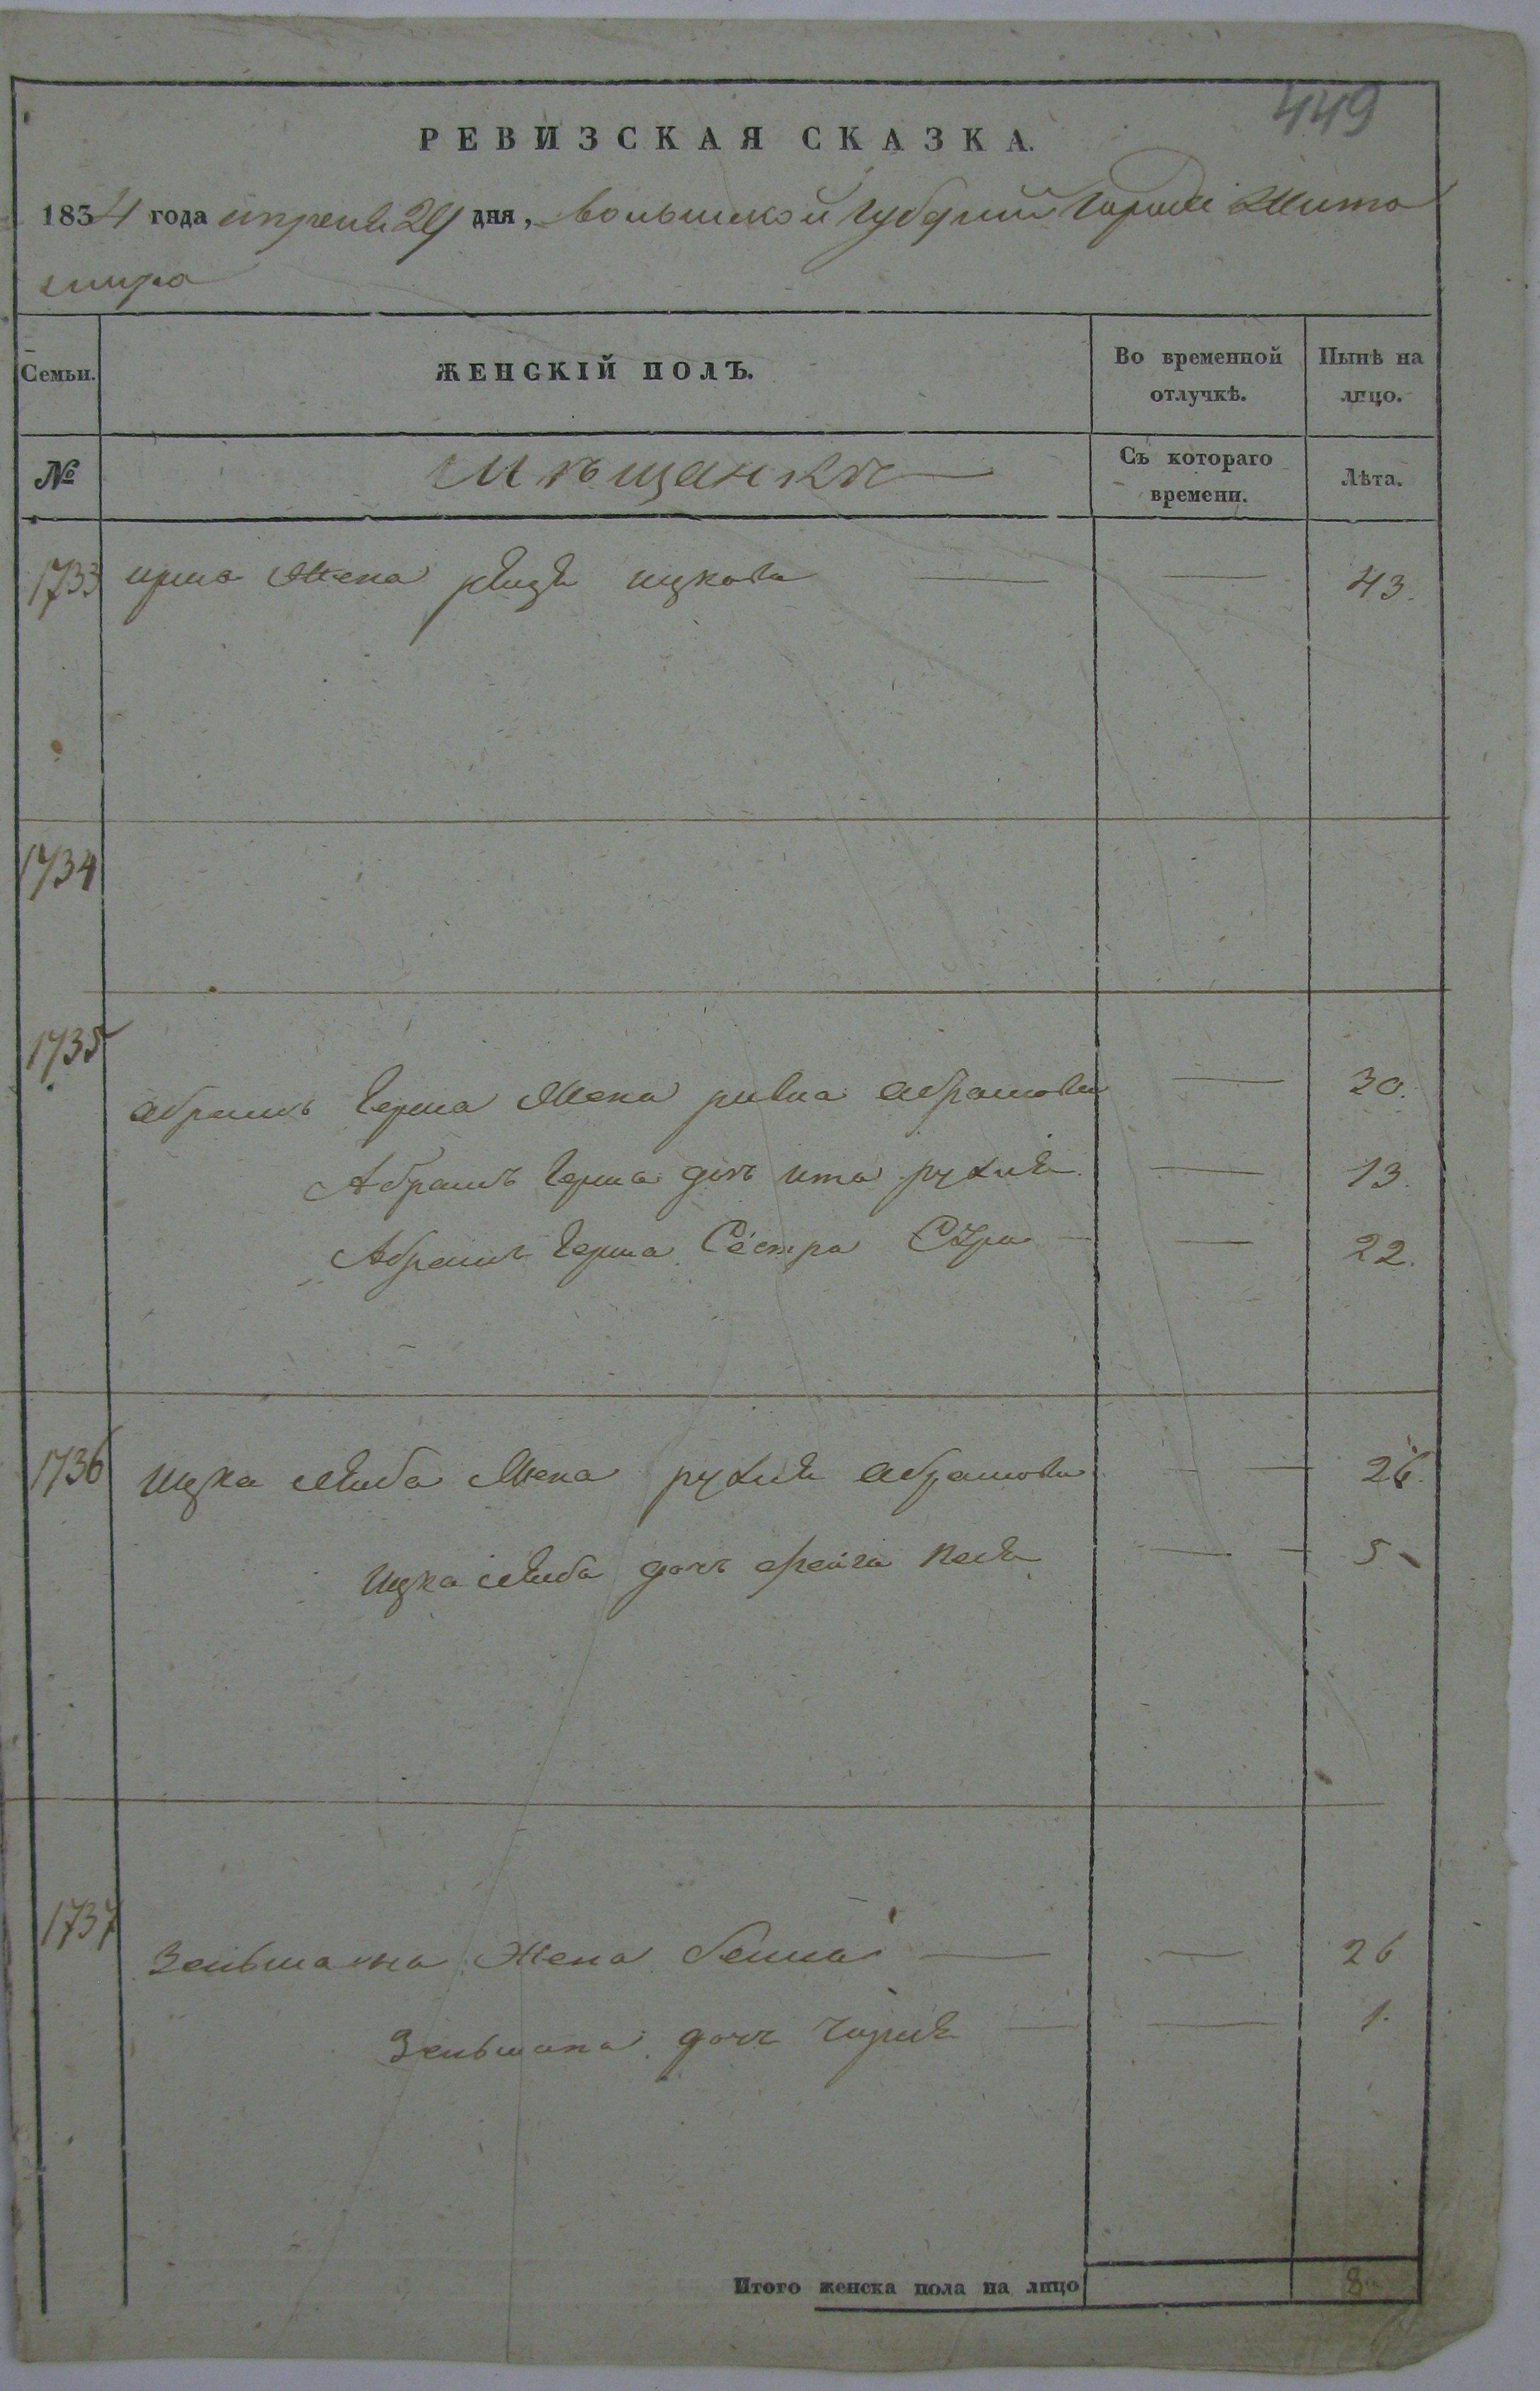 449
РЕВИЗСКАЯ СКАЗКА.
1834 года апреля 29 дня, волынской губернии города Жито
мира
Семьи.
ЖЕНСКІЙ ПОЛЪ.
Во временной отлучкѣ.
Нынѣ на лицо.
№
Мѣщанкѣ
Съ котораго времени.
Лѣта.
1733 жена ицкова — — 43.
1734
1735
абрамъ герша жена ривка абрамова — 30.
Абрамъ герша дочь ита рухля — 13.
Абрамъ герша Сестра Сура — — 22.
1736 Ицка лейба жена рухля абрамова — 26.
Ицка лейба дочь фейга песя — 5
1737
Зельмана жена бейла — — 26
Зельмана дочь — — 1.
Итого женска пола на лицо 8.